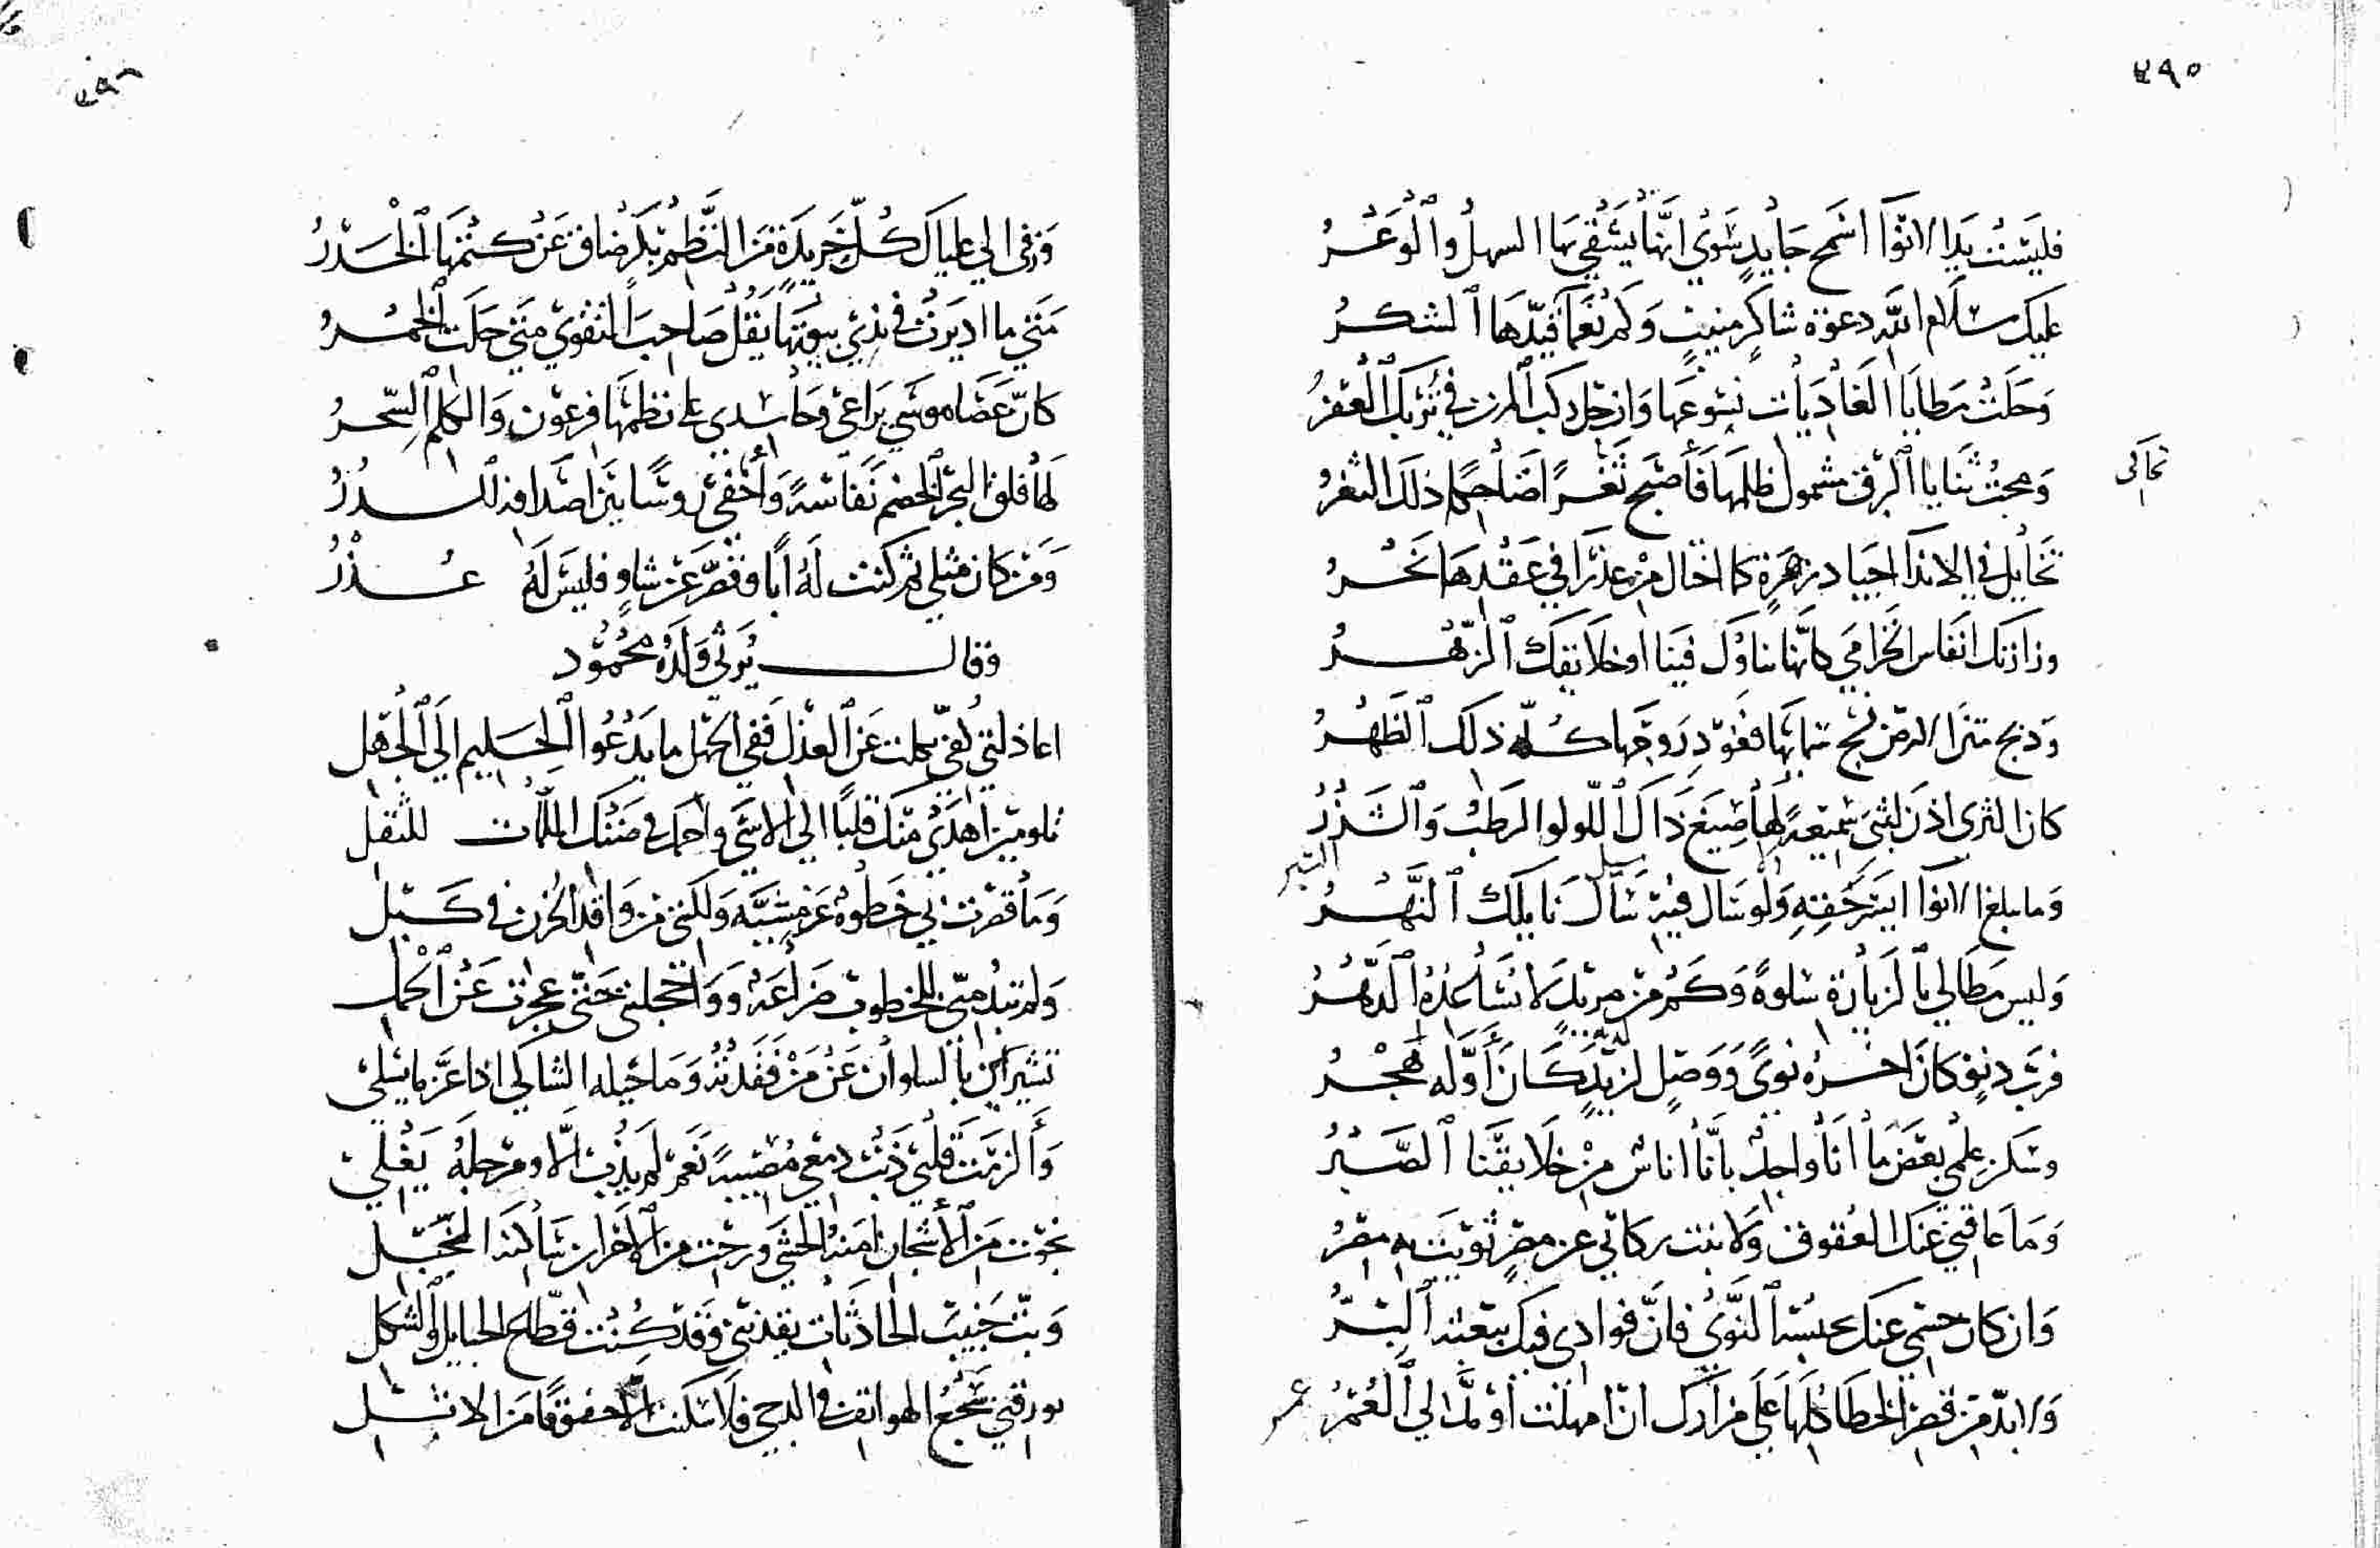 ٢٩٥
فليست يد الانوا اسمح جايد سوي انها يشقي بها السهل والوعر
عليك سلام الله دعوة شاكر منيب وكم نعما قيدها الشكر
وحلت مطايا الغاديات نسوعها وارخل ركب المزن في تربك العفر
ومجت ثنايا البرق مشمول ظلمها فأصبح ثغرا ضاحكا ذلك الثغر
تحاكي
تخايل في الاندا اجياد زهرة كما اختال من عذرا في عقدها نحر
وزارتك انفاس الخزامي كانها تناول فينا او خلايقك الزهر
ودبج متن الارض نسج سمايها فغودر روضها كله ذلك الظهر
كان الثري اذن لبثي سميعة لها صيغ ذاك اللولو الرطب والشذر
التبر
وما بلغ الانوا ايسر حقه ولو سال فيه سال نايلك النهر
وليس مطالي بالزيارة سلوة وكم من مريد لا تساعده الدهر
فرب دنو كان اخره نوي ووصل لزيد كان أوله هجر
وسكن علمي بعض ما انا واجد بانا اناس من خلايقنا الصبر
وما عاقني عنك العقوق ولا نبت ركابي عن مصر ثويت به مصر
وان كان جسمي عنك يحبسه النوي فان فوادي فيك يبعثه البر
ولا بد من قصر الخطا كلها علي مزارك ان امهلت او مد لي العمر
عمر
٢٩٦
وزفي الي علياك كل خريدة من النظم بكر ضاق عن كتمها الخدر
متي ما اديرت في ندي بيوتها يقل صاحب التقوي متي حلت الخمر
كان عصا موسي يراعي وحاسدي علي نظمها فرعون والكلم السحر
لها فلق البحر الخضم نفاسة وأخفي روسا بين اصدافه الدر
ومن كان مثلي ثم كنت له ابا وقصر عن شاو فليس له عذر
وقال يرثي ولده محمود
اعاذلتي كفي كلت عن العذل ففي الجهل ما يدعوا الحليم الي الجهل
تلومين اهدي منك قلبا الي الاسي واحمل في ضنك الملمات للثقل
وما قصرت بي خطوه عن مشية ولكنني من واقد الحزن في كبل
ولم تبد مني للخطوب ضراعة وواخجلتي حتي عجزت عن الحمل
تشيرين بالسلوان عن من فقدته وما حيلة الشاكي اذا عز ما يسلي
وألزمت قلبي ذنب دمعي مصيبة نعم لم يذب الا ومرجله يغلي
نجوت من الأشجان امنة الحشي ورحت من الاحزان ساكنة الخبل
وبت حبيب الحادثات يقدنني وقد كنت قطاع الحبايل والشكل
يورقني سجع الهواتف في الدجي فلا سكنت الا خفوقا من الاثل